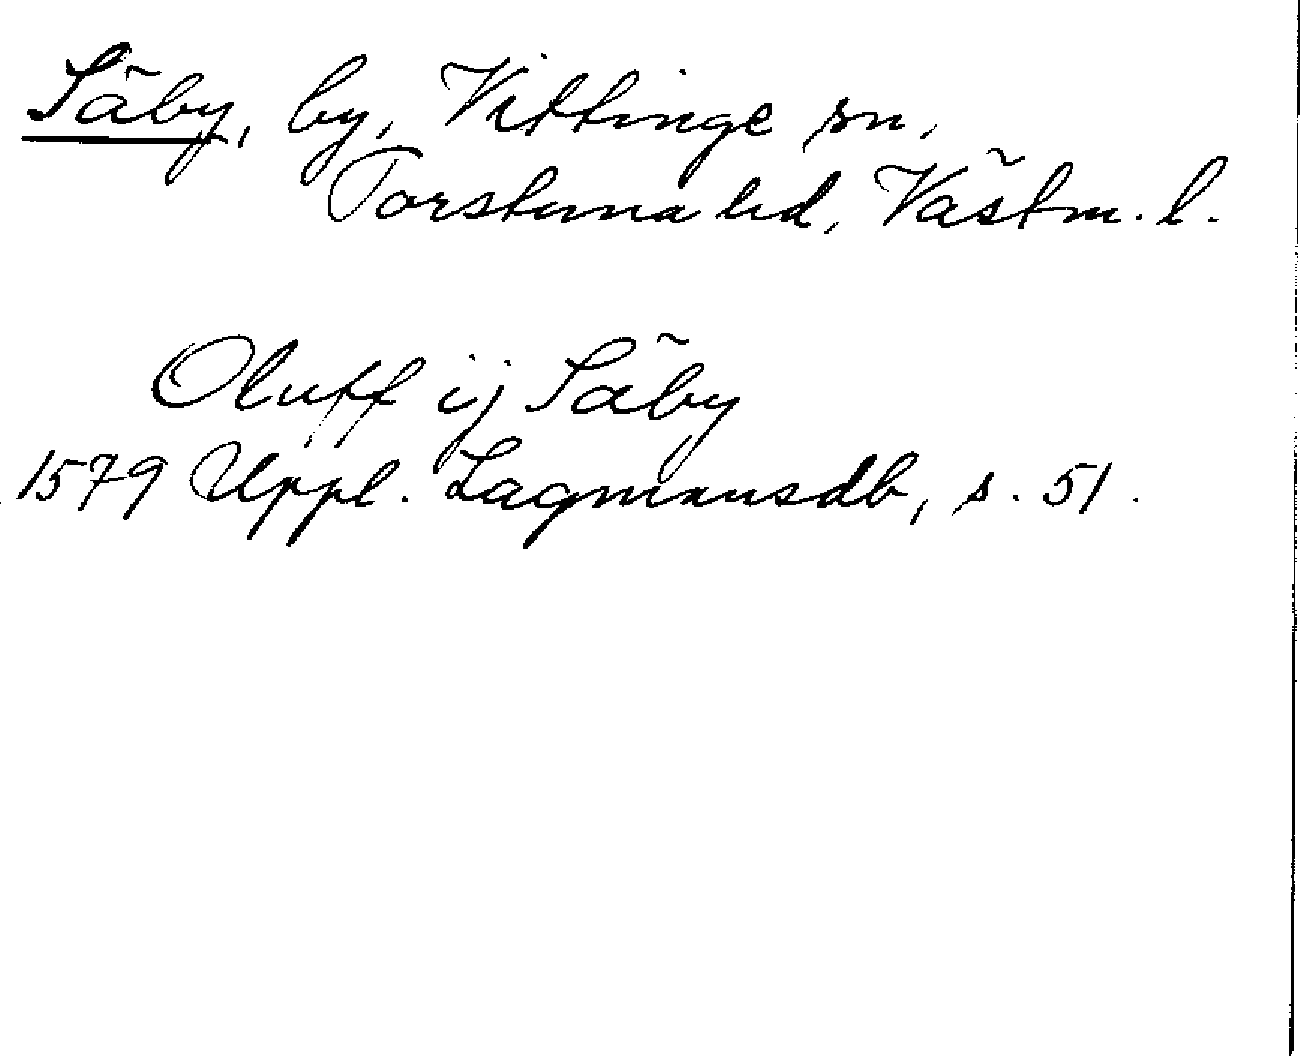 Säby, by, Vittinge sn,
Torstuna hd, Västm. l.
Oluff ij Säby
1579 Uppl. Lagmansdb, s. 51.